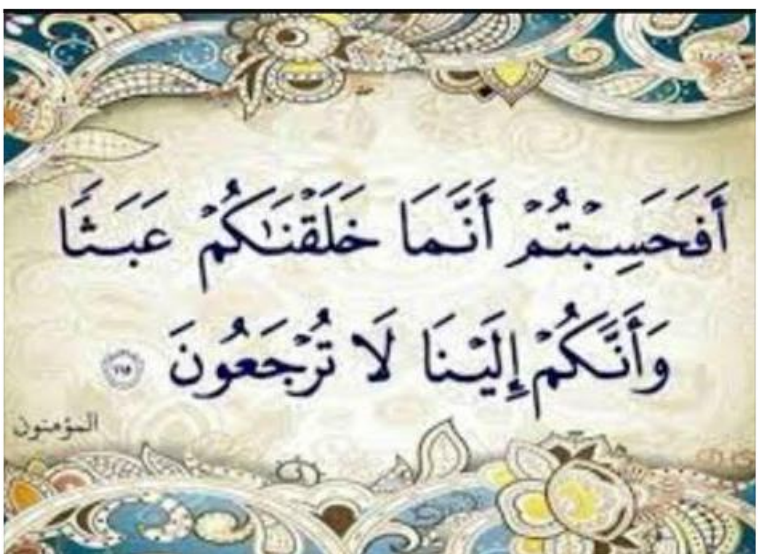 أَفَحَسِبْتُمْ أَنَّمَا خَلَقْنَٰكُمْ عَبَثًا
وَأَنَّكُمْ إِلَيْنَا لَا تُرْجَعُونَ ١١٥
المؤمنون